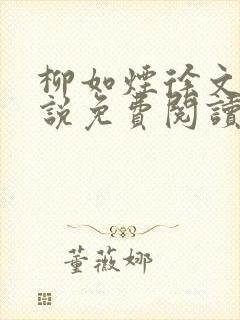 柳如煙徐文
說免費閱讀
董薇娜